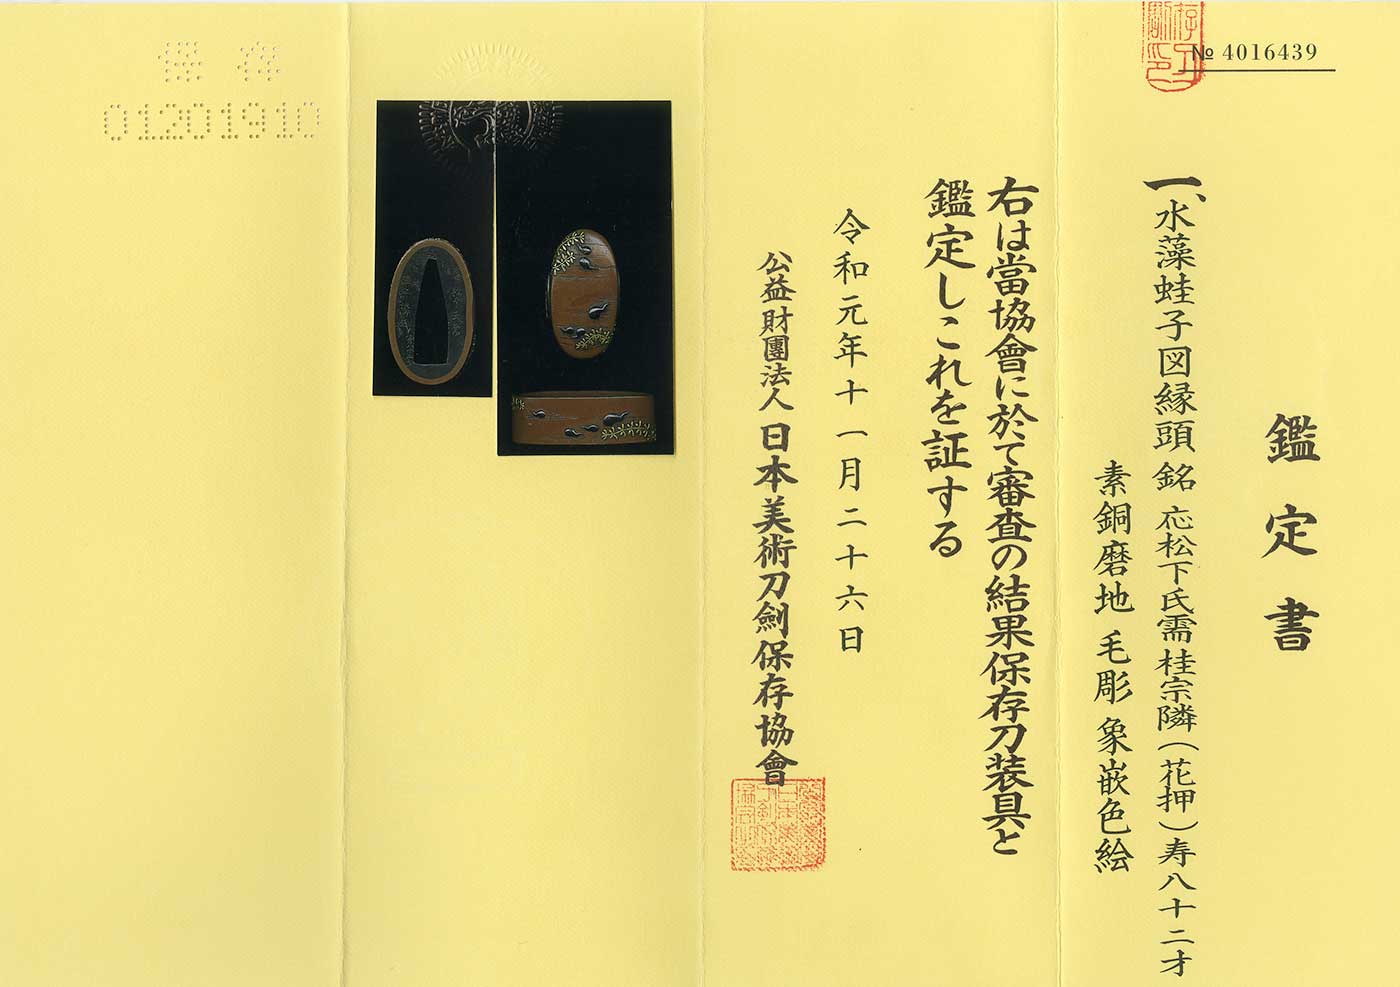 № 4016439
鑑定書
一、水藻蛙子図縁頭 銘 応松下氏需桂宗隣（花押）寿八十二才
素銅磨地 毛彫 象嵌色絵
右は當協會に於て審査の結果保存刀装具と
鑑定しこれを証する
令和元年十一月二十六日
公益財團法人 日本美術刀劍保存協會
保存
01201910